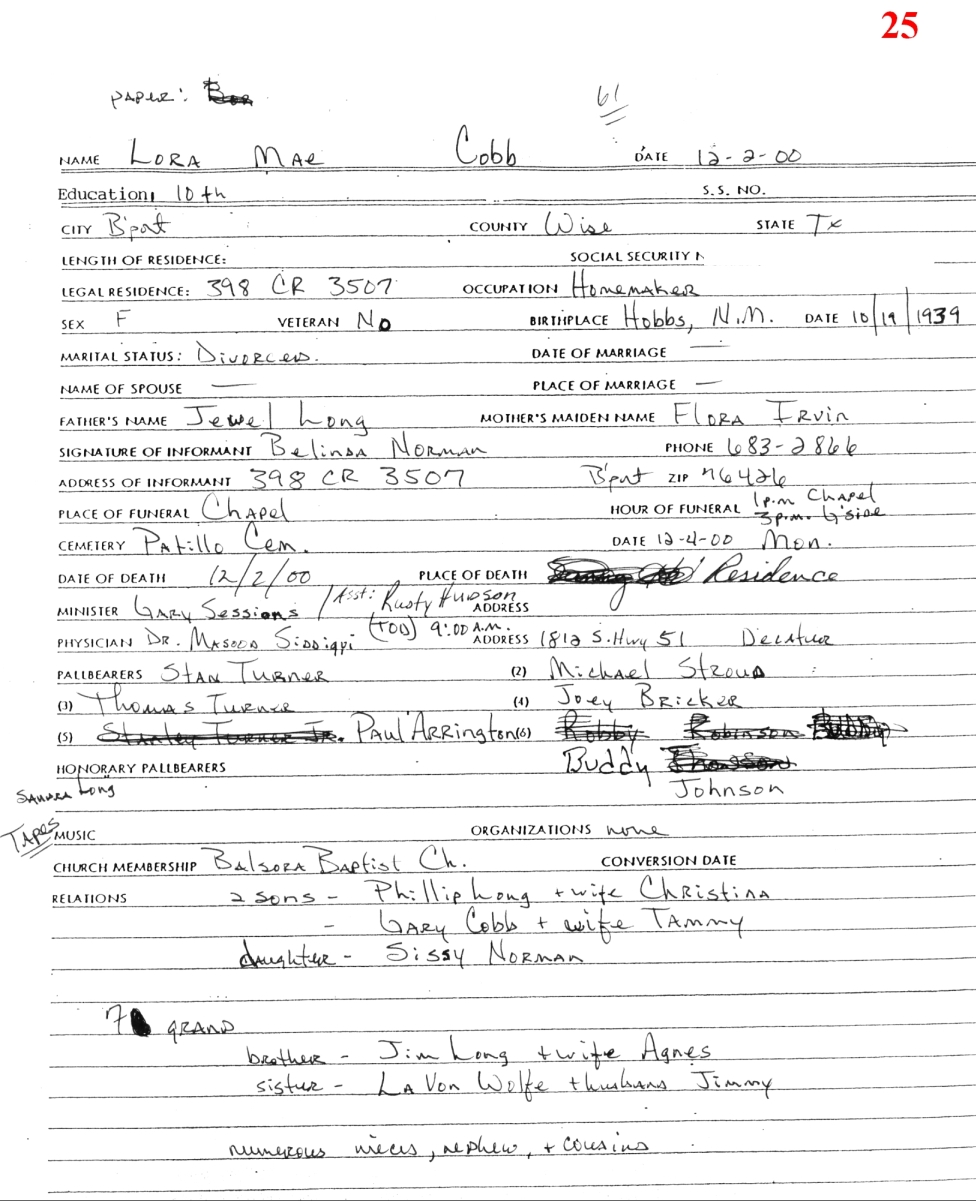 25
PAPER:
61
NAME LORA MAE Cobb DATE 12-2-00
Education: 10th S.S. NO.
CITY B'port COUNTY Wise STATE Tx
LENGTH OF RESIDENCE: SOCIAL SECURITY N
LEGAL RESIDENCE: 398 CR 3507 OCCUPATION Homemaker
SEX F VETERAN No BIRTHPLACE Hobbs, N.M. DATE 10/19/1939
MARITAL STATUS: Divorced. DATE OF MARRIAGE —
NAME OF SPOUSE — PLACE OF MARRIAGE —
FATHER'S NAME Jewel Long MOTHER'S MAIDEN NAME Flora Irvin
SIGNATURE OF INFORMANT Belinda Norman PHONE 683-2866
ADDRESS OF INFORMANT 398 CR 3507 B'port ZIP 76426
PLACE OF FUNERAL Chapel HOUR OF FUNERAL 1p.m Chapel
3p.m. G'side
CEMETERY Patillo Cem. DATE 12-4-00 Mon.
DATE OF DEATH 12/2/00 PLACE OF DEATH Residence
MINISTER Gary Sessions / Asst: Rusty Hudson ADDRESS
(TOD) 9:00 A.M.
PHYSICIAN Dr. Masood Siddiqpi ADDRESS 1812 S. Hwy 51 Decatur
PALLBEARERS Stan Turner (2) Michael Stroud
(3) Thomas Turner (4) Joey Bricker
(5) Stanley Turner Jr. Paul Arrington (6) Robby Robinson
HONORARY PALLBEARERS Buddy
Johnson
Sandra Long
Tapes
MUSIC ORGANIZATIONS none
CHURCH MEMBERSHIP Balsora Baptist Ch. CONVERSION DATE
RELATIONS 2 sons - Phillip Long + wife Christina
- Gary Cobb + wife Tammy
daughter - Sissy Norman
7 GRAND
brother - Jim Long + wife Agnes
sister - La Von Wolfe + husband Jimmy
numerous nieces, nephew, + cousins